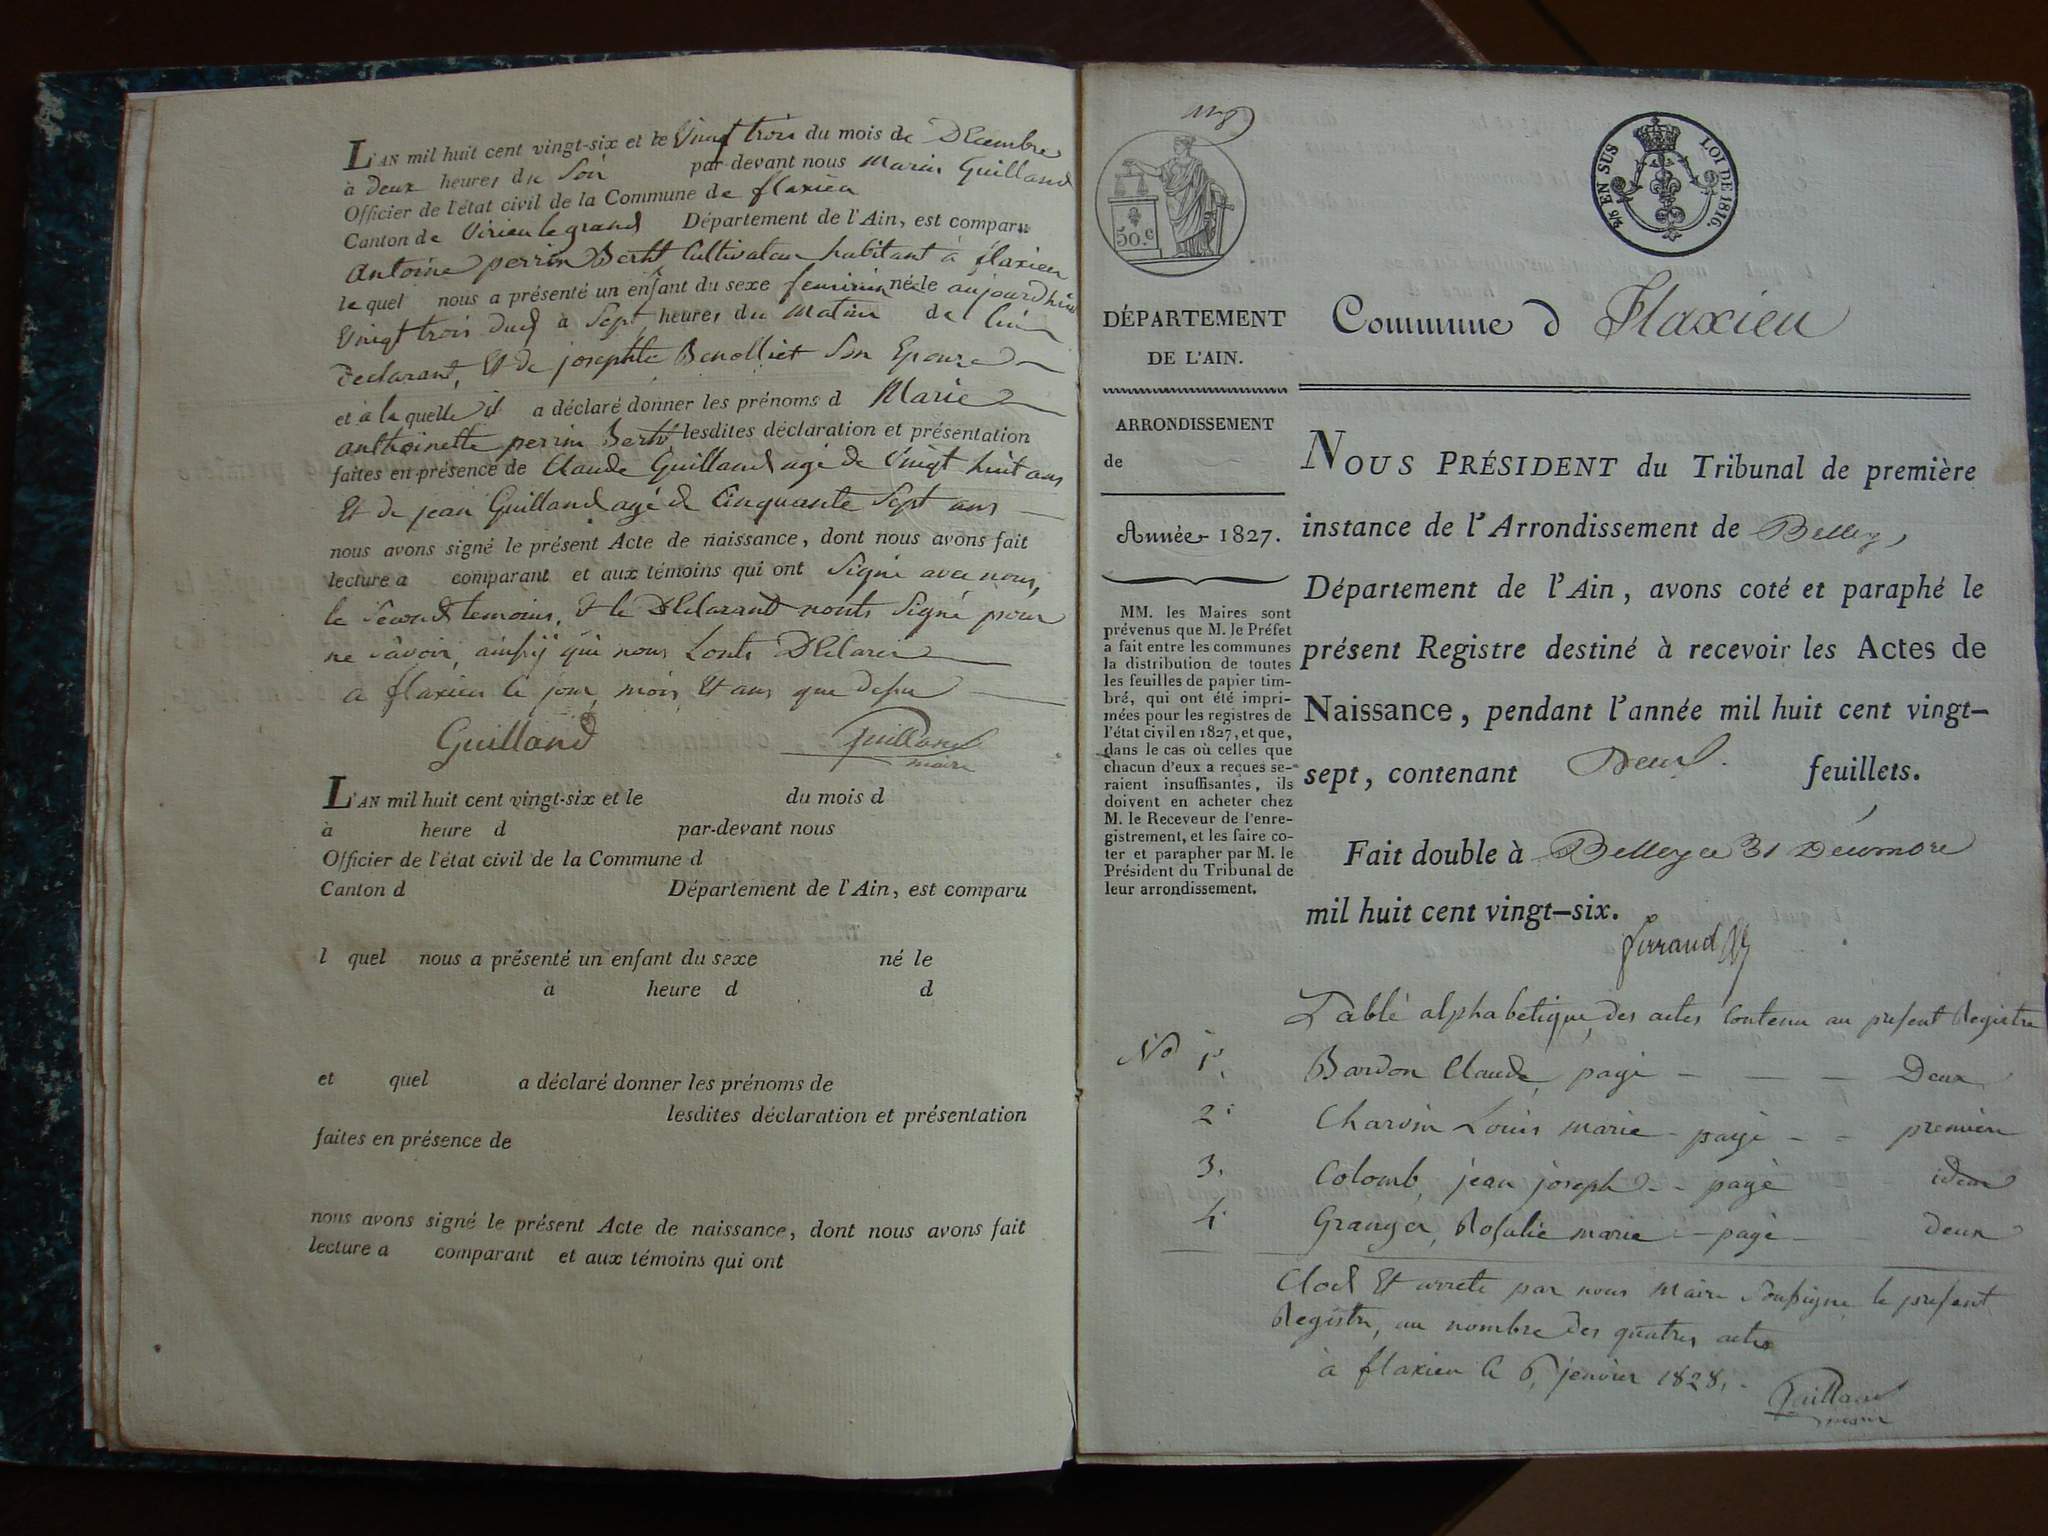 L'AN mil huit cent vingt-six et le Vingt trois du mois de Décembre
à Deux heures du Soir par-devant nous Marin Guilland
Officier de l'état civil de la Commune de flaxieu
Canton de Virieu le grand Département de l'Ain, est comparu
Antoine perrin Berth Cultivateur habitant à flaxieu
le quel nous a présenté un enfant du sexe feminin né le aujourdhui
Vingt trois dud à Sept heures du Matin de lui
Declarant, Et de josephte Benolliet Son Epouze
et à la quelle il a déclaré donner les prénoms d Marie
anthoinette perrin Berth lesdites déclaration et présentation
faites en présence de Claude Guilland agé de Vingt huit ans
Et de jean Guilland agé de Cinquante Sept ans
nous avons signé le présent Acte de naissance, dont nous avons fait
lecture a comparant et aux témoins qui ont Signé avec nous,
le Second temoins, Et le Déclarant nonts Signé pour
ne Savoir, ainsy qui nous Lonts Déclarer
a flaxieu le jour, mois, Et ans que desu
Guilland Guilland
maire
L'AN mil huit cent vingt-six et le du mois d
à heure d par-devant nous
Officier de l'état civil de la Commune d
Canton d Département de l'Ain, est comparu
l quel nous a présenté un enfant du sexe né le
à heure d d
et quel a déclaré donner les prénoms de
lesdites déclaration et présentation
faites en présence de
nous avons signé le présent Acte de naissance, dont nous avons fait
lecture a comparant et aux témoins qui ont
50.c
EN SUS LOI DE 1816.
DÉPARTEMENT
DE L'AIN.
ARRONDISSEMENT
de
Année 1827.
MM. les Maires sont
prévenus que M. le Préfet
a fait entre les communes
la distribution de toutes
les feuilles de papier tim-
bré, qui ont été impri-
mées pour les registres de
l'état civil en 1827, et que,
dans le cas où celles que
chacun d'eux a reçues se-
raient insuffisantes, ils
doivent en acheter chez
M. le Receveur de l'enre-
gistrement, et les faire co-
ter et parapher par M. le
Président du Tribunal de
leur arrondissement.
Commune d Flaxieu
NOUS PRÉSIDENT du Tribunal de première
instance de l'Arrondissement de Belley,
Département de l'Ain, avons coté et paraphé le
présent Registre destiné à recevoir les Actes de
Naissance, pendant l'année mil huit cent vingt-
sept, contenant Deux feuillets.
Fait double à Belley ce 31 Décembre
mil huit cent vingt-six.
Tablé alphabetique des actes Contenu au present Registre
No 1. Bardon Claude page Deux
2. Charvin Louis marie page premiere
3. Colomb, jean joseph page idem
4. Granger, Rosalie marie page deux
Clos Et arrete par nous Maire Soussigne le present
Registre, au nombre des quatres actes
à flaxieu le 6, jenvier 1828,
Guilland
maire